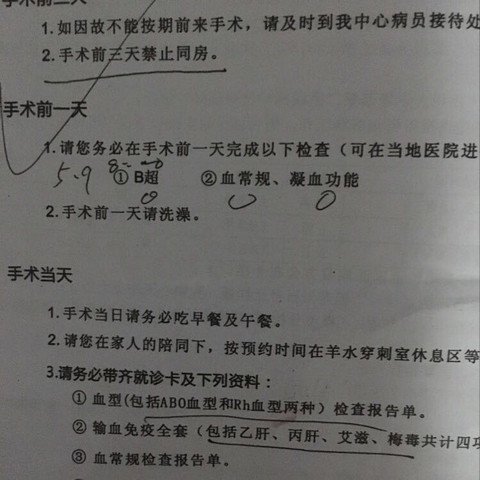 1.如因故不能按期前来手术，请及时到我中心病员接待处
2.手术前三天禁止同房。
手术前一天
1.请您务必在手术前一天完成以下检查（可在当地医院进
5.9 ①B超 ②血常规、凝血功能
2.手术前一天请洗澡。
手术当天
1.手术当日请务必吃早餐及午餐。
2.请您在家人的陪同下，按预约时间在羊水穿刺室休息区等
3.请务必带齐就诊卡及下列资料：
①血型(包括ABO血型和Rh血型两种）检查报告单。
②输血免疫全套（包括乙肝、丙肝、艾滋、梅毒共计四项
③血常规检查报告单。